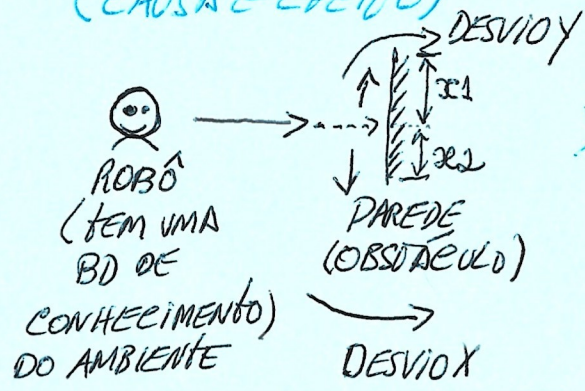 (CAUSA E EFEITO)
DESVIO Y
x1
x2
ROBÔ
(TEM UMA
BD DE
CONHECIMENTO)
DO AMBIENTE
PAREDE
(OBSTÁCULO)
DESVIO X